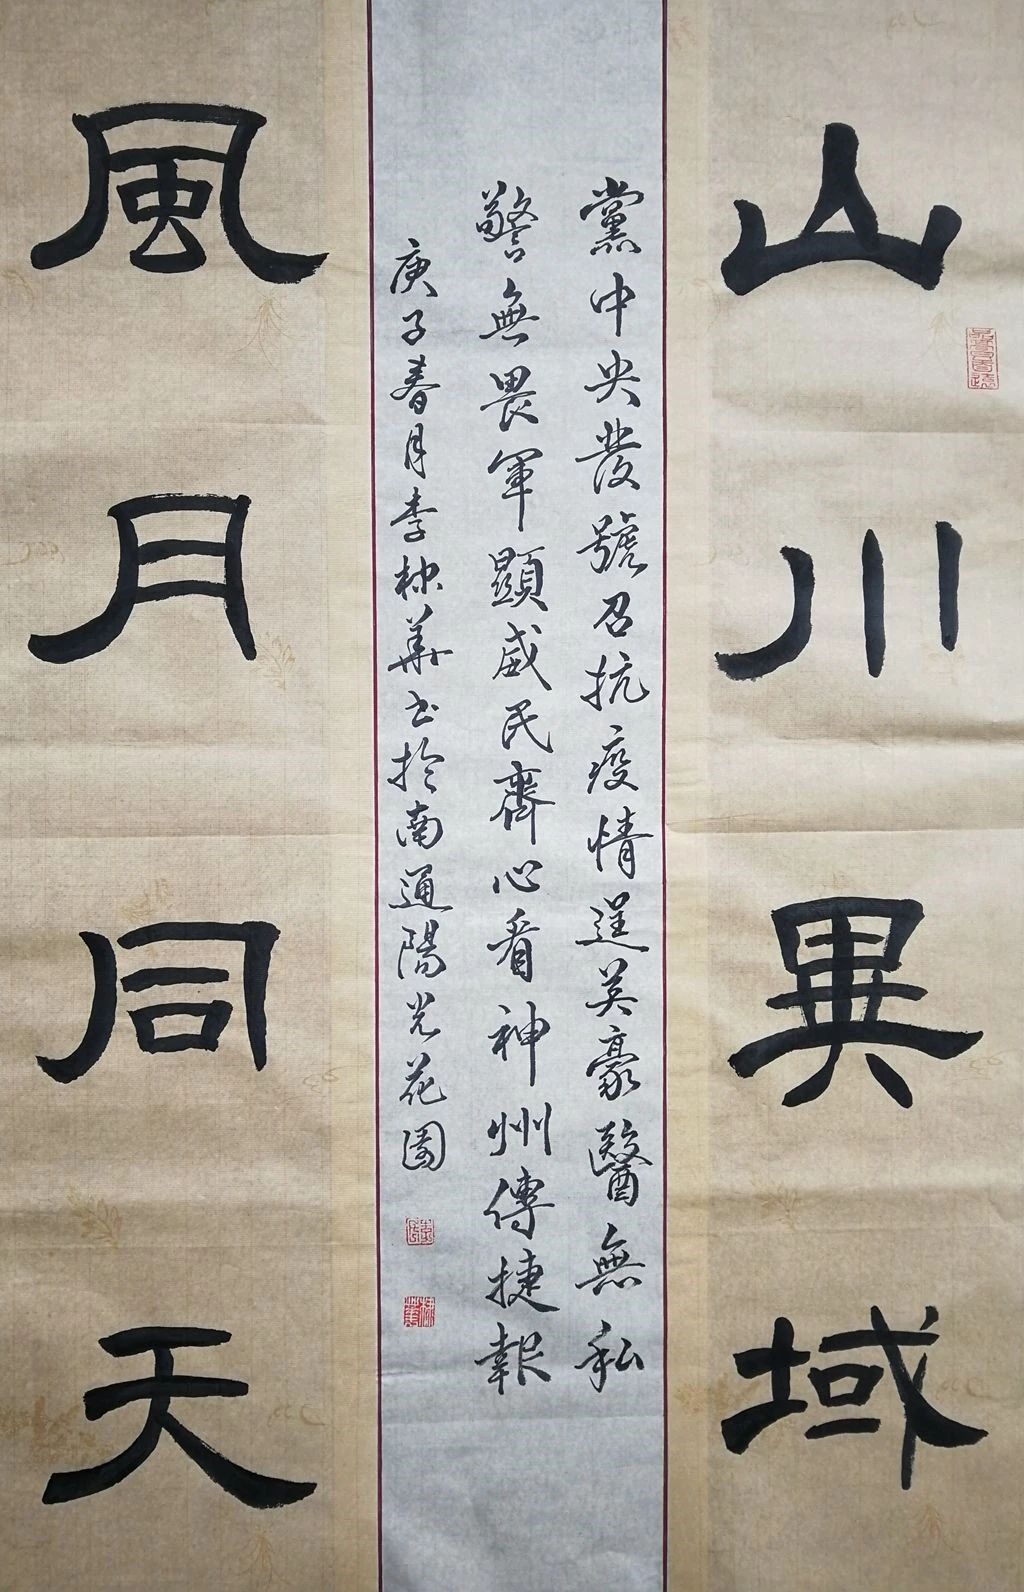 山川異域
黨中央發號召抗疫情逞英豪醫無私
警無畏軍顯威民齊心看神州傳捷報
庚子春月李棣華书於南通陽光花園
風月同天